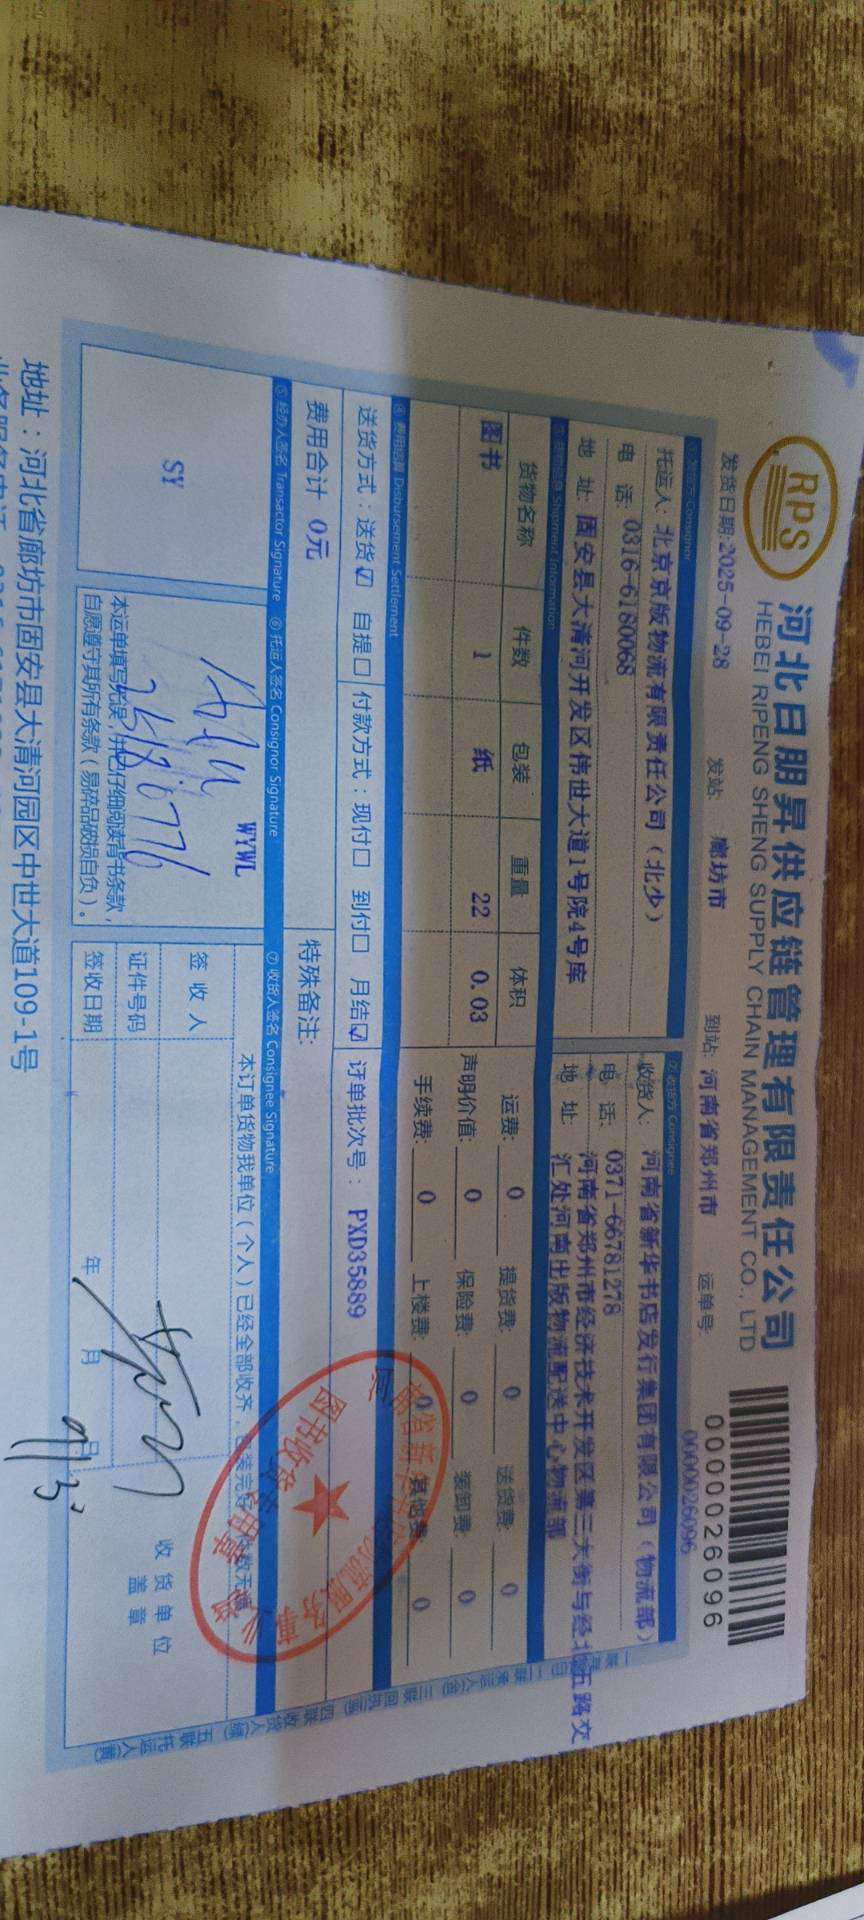 RPS
河北日朋昇供应链管理有限责任公司
HEBEI RIPENG SHENG SUPPLY CHAIN MANAGEMENT CO., LTD
0000026096
发货日期:2025-09-28 发站: 廊坊市 到站: 河南省郑州市 运单号: 0000026096
① 发货方 Consignor ② 收货方 Consignee
托运人: 北京京版物流有限责任公司(北少)
电 话: 0316-6180068
地 址: 固安县大清河开发区伟世大道1号院4号库
收货人: 河南省新华书店发行集团有限公司(物流部)
电 话: 0371-66781278
地 址: 河南省郑州市经济技术开发区第三大街与经北五路交
汇处河南出版物流配送中心物流部
Shipment Information
货物名称 件数 包装 重量 体积
图书 1 纸 22 0.03
运费: 0 提货费: 0 送货费: 0
声明价值: 0 保险费: 0 装卸费: 0
手续费: 0 上楼费: 0 其他费: 0
④ 费用结算 Disbursement Settlement
送货方式:送货☑ 自提☐ 付款方式:现付☐ 到付☐ 月结☑ 订单批次号: PXD35889
费用合计 0元 特殊备注:
⑤ 经办人签名 Transactor Signature ⑥ 托运人签名 Consignor Signature ⑦ 收货人签名 Consignee Signature
SY
WYWL
本运单填写无误,并已仔细阅读背书条款,
自愿遵守其所有条款(易碎品破损自负)。
本订单货物我单位(个人)已经全部收齐,
签 收 人
证件号码
签收日期 年 月 号
收货单位
盖 章
地址:河北省廊坊市固安县大清河园区中世大道109-1号